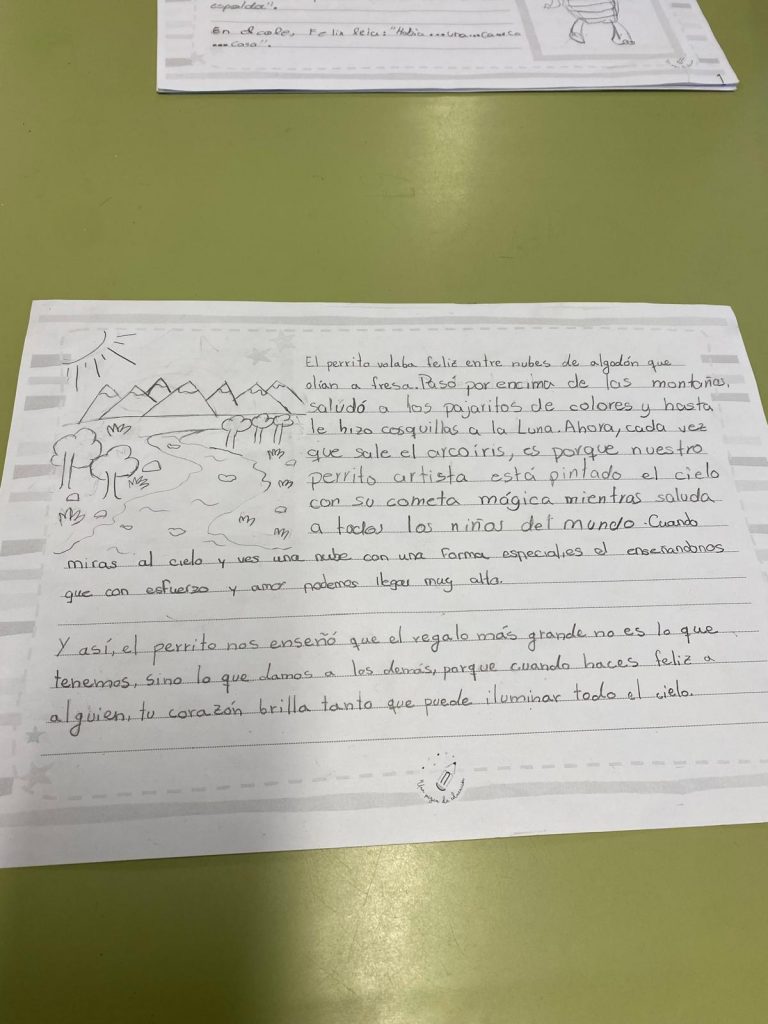 espalda".
En el cole, Felix leía: "Había...una...ca...ca
...casa".
1
El perrito volaba feliz entre nubes de algodón que
olían a fresa. Pasó por encima de las montañas,
saludó a los pajaritos de colores y hasta
le hizo cosquillas a la Luna. Ahora, cada vez
que sale el arcoíris, es porque nuestro
perrito artista está pintado el cielo
con su cometa mágica mientras saluda
a todos los niños del mundo. Cuando
miras al cielo y ves una nube con una forma especial, es el enseñandonos
que con esfuerzo y amor podemos llegar muy alto.
Y así, el perrito nos enseñó que el regalo más grande no es lo que
tenemos, sino lo que damos a los demás, porque cuando haces feliz a
alguien, tu corazón brilla tanto que puede iluminar todo el cielo.